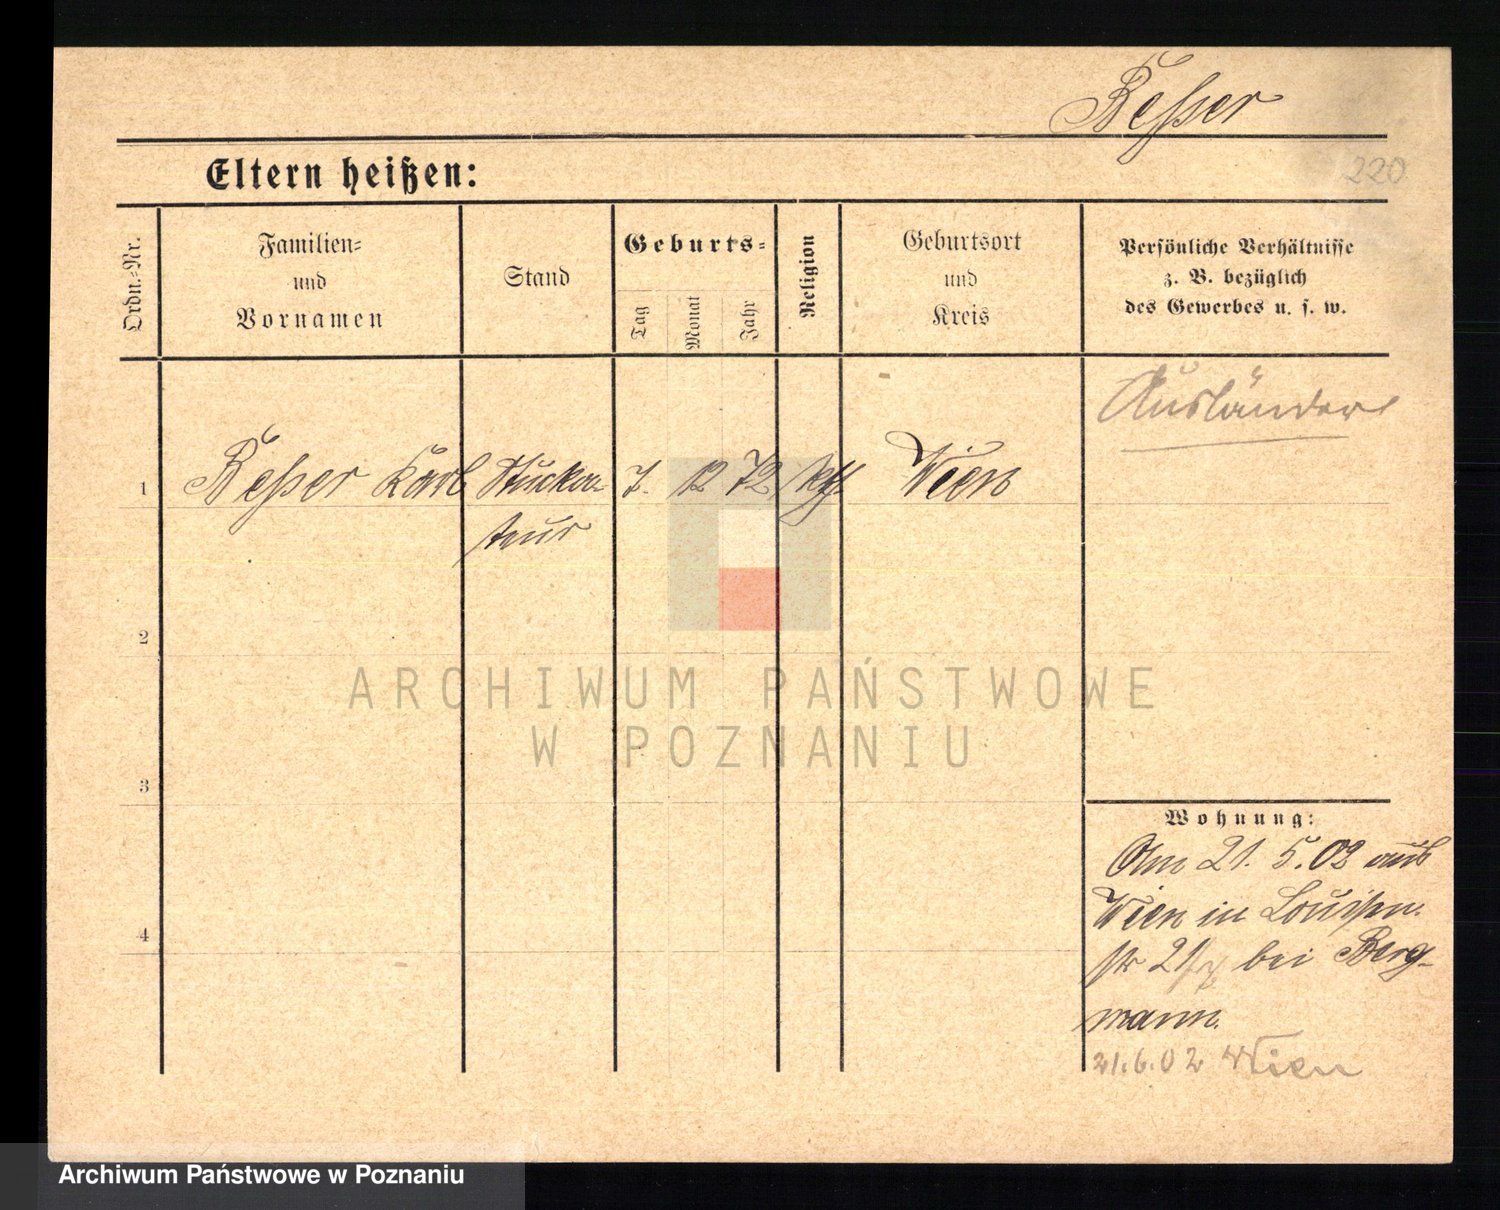 Besser
220
Eltern heißen:
Ordn.-Nr.
Familien-
und
Vornamen
Stand
Geburts-
Tag
Monat
Jahr
Religion
Geburtsort
und
Kreis
Persönliche Verhältnisse
z. B. bezüglich
des Gewerbes u. s. w.
Ausländer
1 Besser Karl Stucka- 7. 12 72 kth Wien
teur
2
3
4
Wohnung:
Am 21. 5. 02 aus
Wien in Louisen
str 21 bei Berg-
mann.
21.6.02 Wien
ARCHIWUM PAŃSTWOWE
W POZNANIU
Archiwum Państwowe w Poznaniu